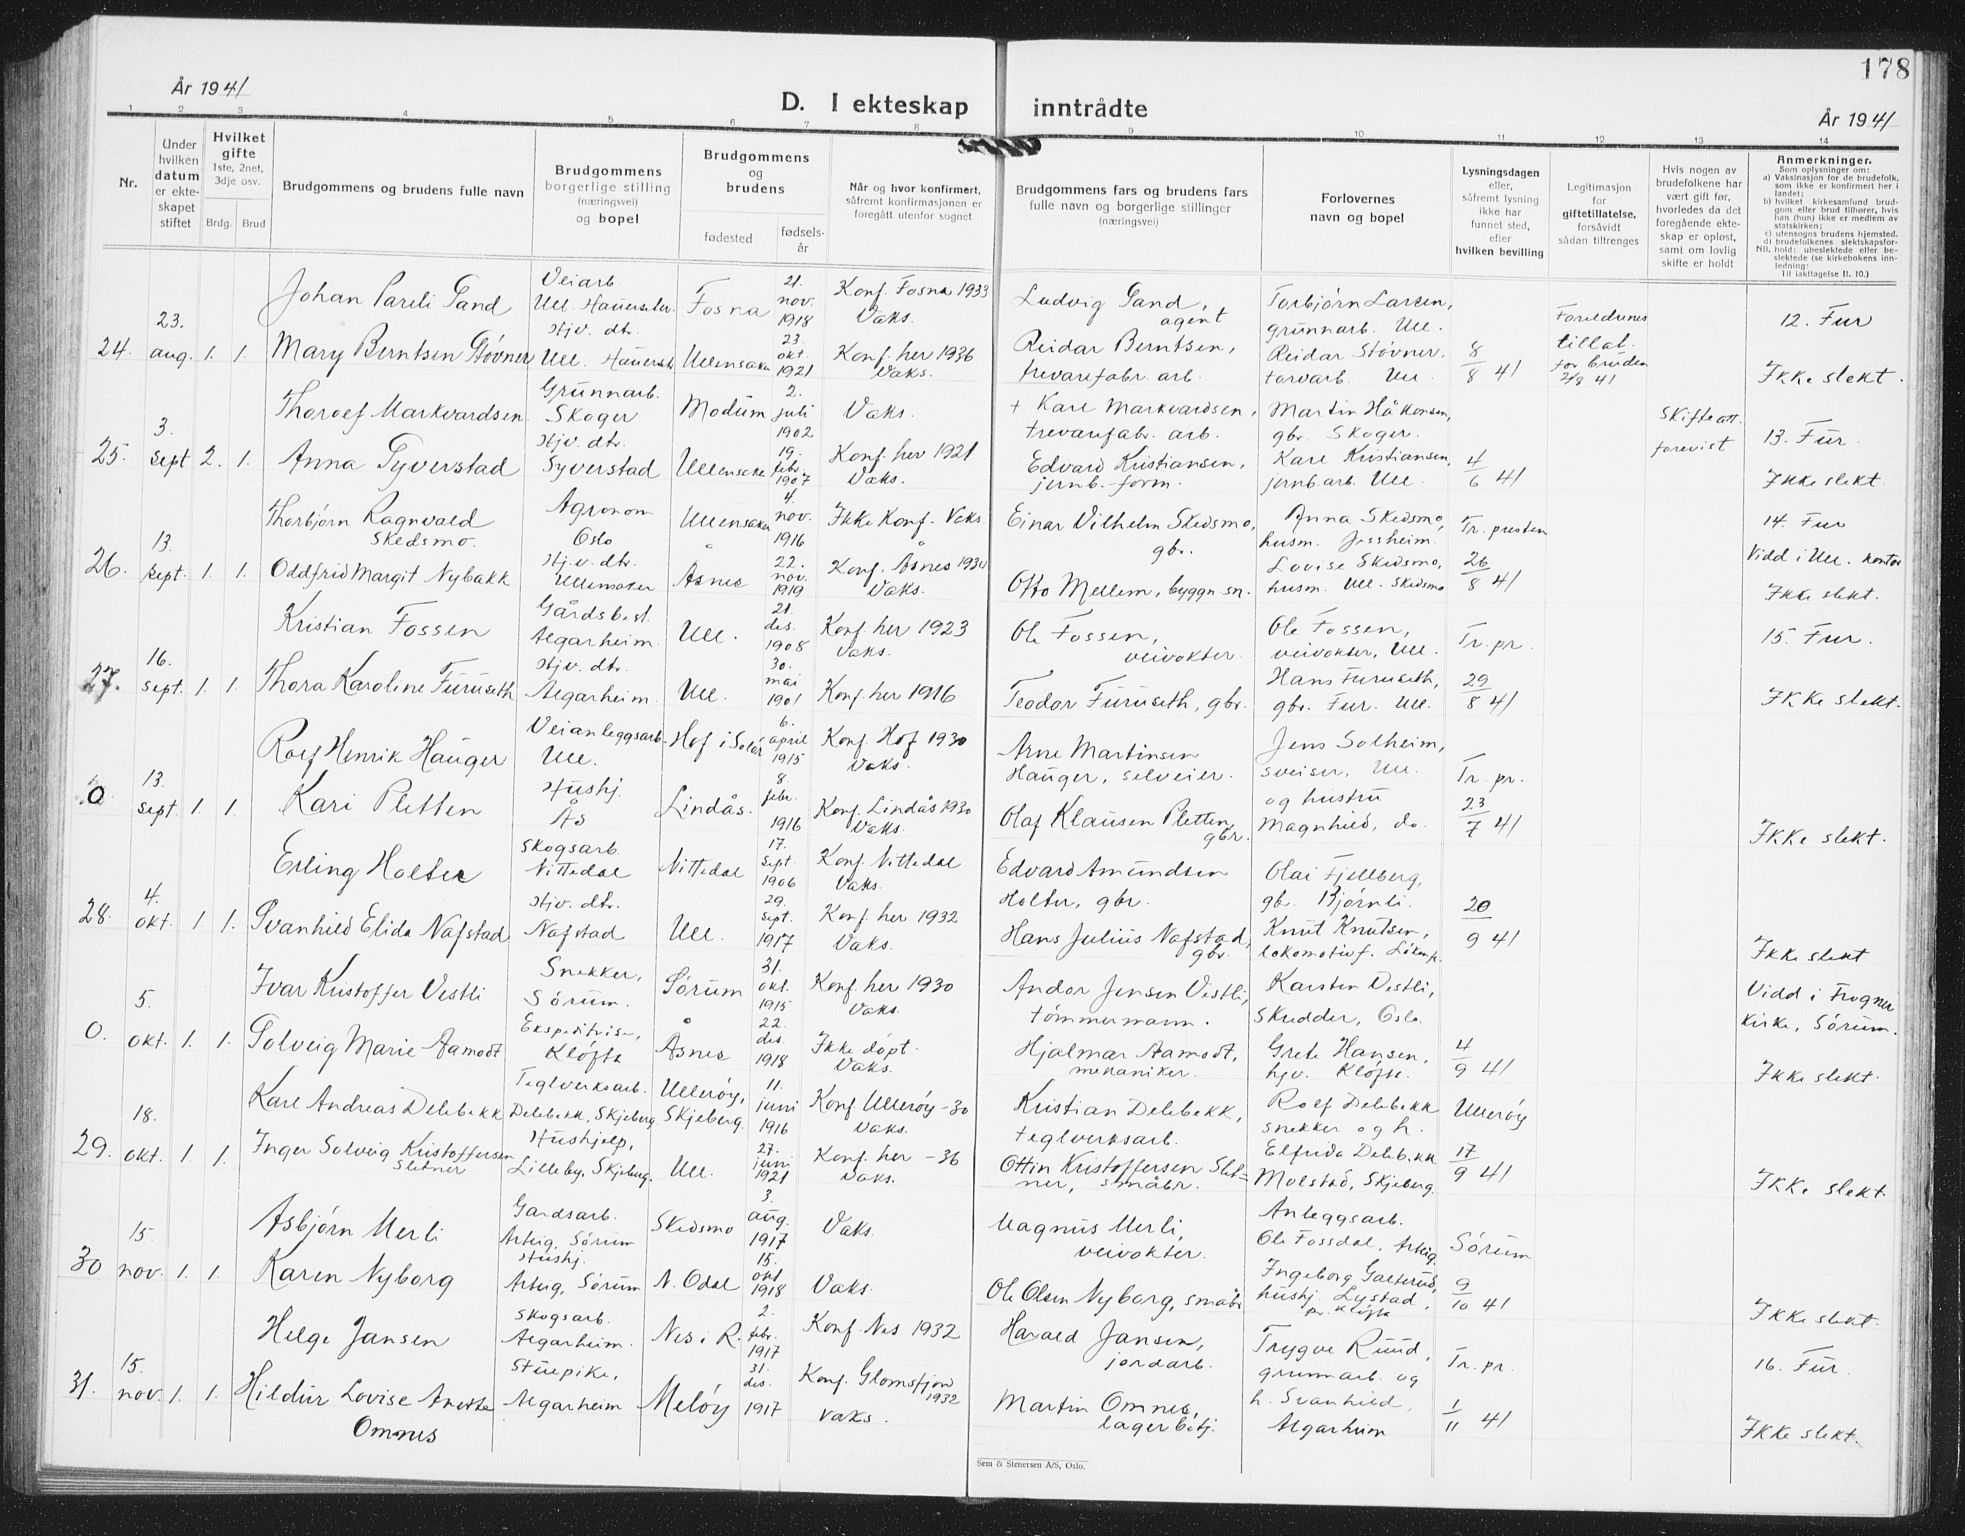 178
År 1941
D. I ekteskap inntrådte
År 1941
1 2 3 4 5 6 7 8 9 10 11 12 13 14
Nr.
Under hvilken datum er ekteskapet stiftet
Hvilket gifte
1ste, 2net, 3dje osv.
Brdg. Brud
Brudgommens og brudens fulle navn
Brudgommens borgerlige stilling (næringsvei) og bopel
Brudgommens og brudens
fødested
fødselsår
Når og hvor konfirmert, såfremt konfirmasjonen er foregått utenfor sognet
Brudgommens fars og brudens fars fulle navn og borgerlige stillinger (næringsvei)
Forlovernes navn og bopel
Lysningsdagen eller, såfremt lysning ikke har funnet sted, efter hvilken bevilling
Legitimasjon for giftetillatelse, forsåvidt sådan tiltrenges
Hvis nogen av brudefolkene har vært gift før, hvorledes da det foregående ekteskap er opløst, samt om lovlig skifte er holdt
Anmerkninger.
Som oplysninger om:
a) Vaksinasjon for de brudefolk, som ikke er konfirmert her i landet;
b) hvilket kirkesamfund brudgom eller brud tilhører, hvis han (hun) ikke er medlem av statskirken;
c) utensogns brudens hjemsted.
d) brudefolkenes slektskapsforhold; ubeslektede eller beslektede (se kirkebokens innledning:
NB.
Til iakttagelse II. 10.)
24. 23. aug. 1. 1.
Johan Pareli Sand Veiarb. Ull. Fosna 21. nov. 1918 Konf. Fosna 1933 Vaks. Ludvig Sand, agent Torbjørn Larsen, grunnarb. Ull. Foreldrenes tillat. for bruden 2/8 41 12. Fur
Mary Berntsen Støvner Hjv. dtr. Ull. Ullensaker 23. okt. 1921 Konf. her 1936 Vaks. Reidar Berntsen, trevarefabr. arb. Reidar Støvner. torvarb. Ull. 8/8 41 Ikke slekt.
25. 3. sept 2. 1.
Thorolf Markvardsen Grunnarb. Skoger Modum 2. juli 1902 Vaks. + Karl Markvardsen, trevarefabr. arb. Martin Håkonsen, gbr. Skoger. Skifteatt. forevist 13. Fur.
Anna Syverstad Hjv. dtr. Syverstad Ullensaker 19. febr. 1907 Konf. her 1921 Vaks. Edvard Kristiansen, jernb. form. Karl Kristiansen, jernb. arb. Ull. 4/6 41 Ikke slekt
26. 13. sept. 1. 1.
Thorbjørn Ragnvald Skedsmo. Agronom Oslo Ullensaker 4. nov. 1916 Ikke Konf. Vaks Einar Vilhelm Skedsmo, gbr. Anna Skedsmo, husm. Jessheim. Tr. presten 14. Fur
Oddfrid Margit Nybakk Hj.v. dtr. Ullensaker Åsnes 22. nov. 1919 Konf. Åsnes 1934 Vaks. Otto Mellem, byggn. sn. Lovise Skedsmo, husm. Ull. Skedsmo 26/8 41 Vidd i Ull. kontor Ikke slekt.
27. 16. sept. 1. 1.
Kristian Fossen Gårdsbest. Algarheim. Ull. 21. des. 1908 Konf. her 1923 Vaks. Ole Fossen, veivokter. Ole Fossen, veivokter, Ull. Tr. pr. 15. Fur.
Thora Karoline Furuseth Hjv. dtr. Algarheim. Ull. 30. mai 1901 Konf. her 1916 Teodor Furuseth, gbr. Hans Furuseth, gbr. Fur. Ull. 29/8 41 Ikke slekt.
0 13. sept 1. 1.
Rolf Henrik Hauger Veianleggsarb. Ull. Hof i Solør 6. april 1915 Konf. Hof 1930 Vaks. Arne Martinsen Hauger, selveier. Jens Solheim, sveiser, Ull. Tr. pr.
Kari Pletten Hushj. Ås Lindås. 8. febr. 1916 Konf. Lindås 1930 Vaks. Olaf Klausen Pletten, gbr. og hustru Magnhild, do. 23/7 41 Ikke slekt.
28. 4. okt. 1. 1.
Erling Holter Skogsarb. Nittedal Nittedal 17. sept. 1906 Konf. Nittedal Vaks. Edvard Amundsen Holter, gbr. Olai Fjellberg, gbr. Bjørnli.
Svanhild Elida Nafstad Hjv. dtr. Nafstad Ull. 29. sept. 1917 Konf. her 1932 Vaks. Hans Julius Nafstad, gbr. Knut Knutsen, lokomotivf. 20/9 41 Ikke slekt
0. 5. okt. 1. 1.
Ivar Kristoffer Vestli Snekker, Sørum. Sørum 31. okt. 1915 Konf. her 1930 Vaks. Andor Jensen Vestli, tømmermann. Karsten Vestli, Skredder, Oslo. Vidd i Frogner Kirke, Sørum.
Solveig Marie Aamodt Ekspeditrise, Kløfta Åsnes 22. des. 1918 Ikke døpt. Vaks. Hjalmar Aamodt, mekaniker. Grete Hansen, hjv. Kløfta. 4/9 41 Ikke slekt.
29. 18. okt. 1. 1.
Karl Andreas Delebekk Teglverksarb. Delebekk, Skjeberg. Ullerøy, Skjeberg. 11. juni 1916 Konf Ullerøy -30 Vaks. Kristian Delebekk, teglverksarb. Rolf Delebekk snekker og h. Ullerøy
Inger Solveig Kristoffersen Sletner Hushjelp, Lilleby, Skjeberg. Ull. 27. juni 1921 Konf. her -36 Vaks. Ottin Kristoffersen Sletner, småbr. Elfrida Delebekk Molstad, Skjeberg. 17/9 41 Ikke slekt.
30 15. nov. 1. 1.
Asbjørn Merli Gardsarb. Arteig, Sørum Skedsmo 3. aug. 1917 Vaks. Magnus Merli, veivokter. Anleggsarb. Ole Fossdal, Arteig. Sørum
Karen Nyborg Hushj. Arteig, Sørum N. Odal 15. okt 1918 Vaks. Ole Olsen Nyborg, småbr Ingeborg hushj. Lystad, pr. Kløfta 9/10 41 Ikke slekt.
31. 15. nov. 1. 1.
Helge Jansen Skogsarb. Algarheim. Nes i R. 2. febr. 1917 Konf. Nes 1932 Harald Jansen, jordarb. Trygve Ruud, grunnarb. og Tr. pr. 16. Fur
Hildur Lovise Anette Omnes Stuepike, Algarheim Meløy 31. des. 1917 Konf. Glomfjord 1932 Vaks. Martin Omnes, lagerbetj. h. Svanhild, Algarheim 1/11 41 Ikke slekt.
Sem & Stenersen A/S, Oslo.